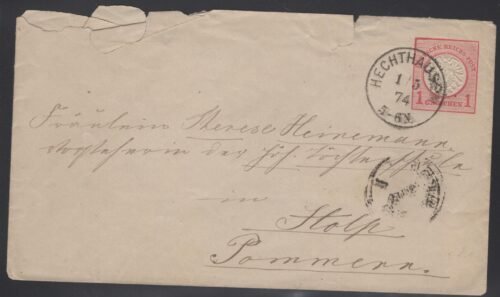 DEUTSCHE REICHS-POST
1 GROSCHEN 1
HECHTHAUSEN
1/5
74
5-6N.
Fräulein Therese Heinemann
Vorsteherin der höh. Töchterschule
in
Stolp
Pommern.